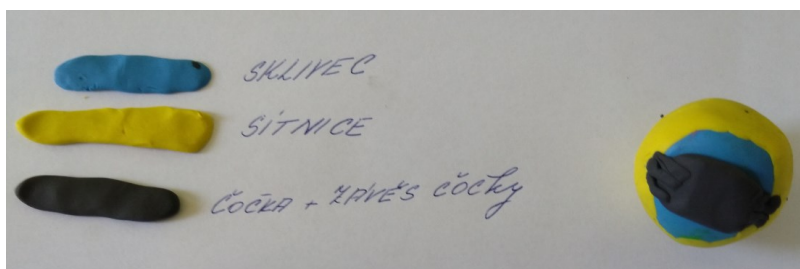 SKLIVEC
SÍTNICE
ČOČKA + ZÁVĚS ČOČKY